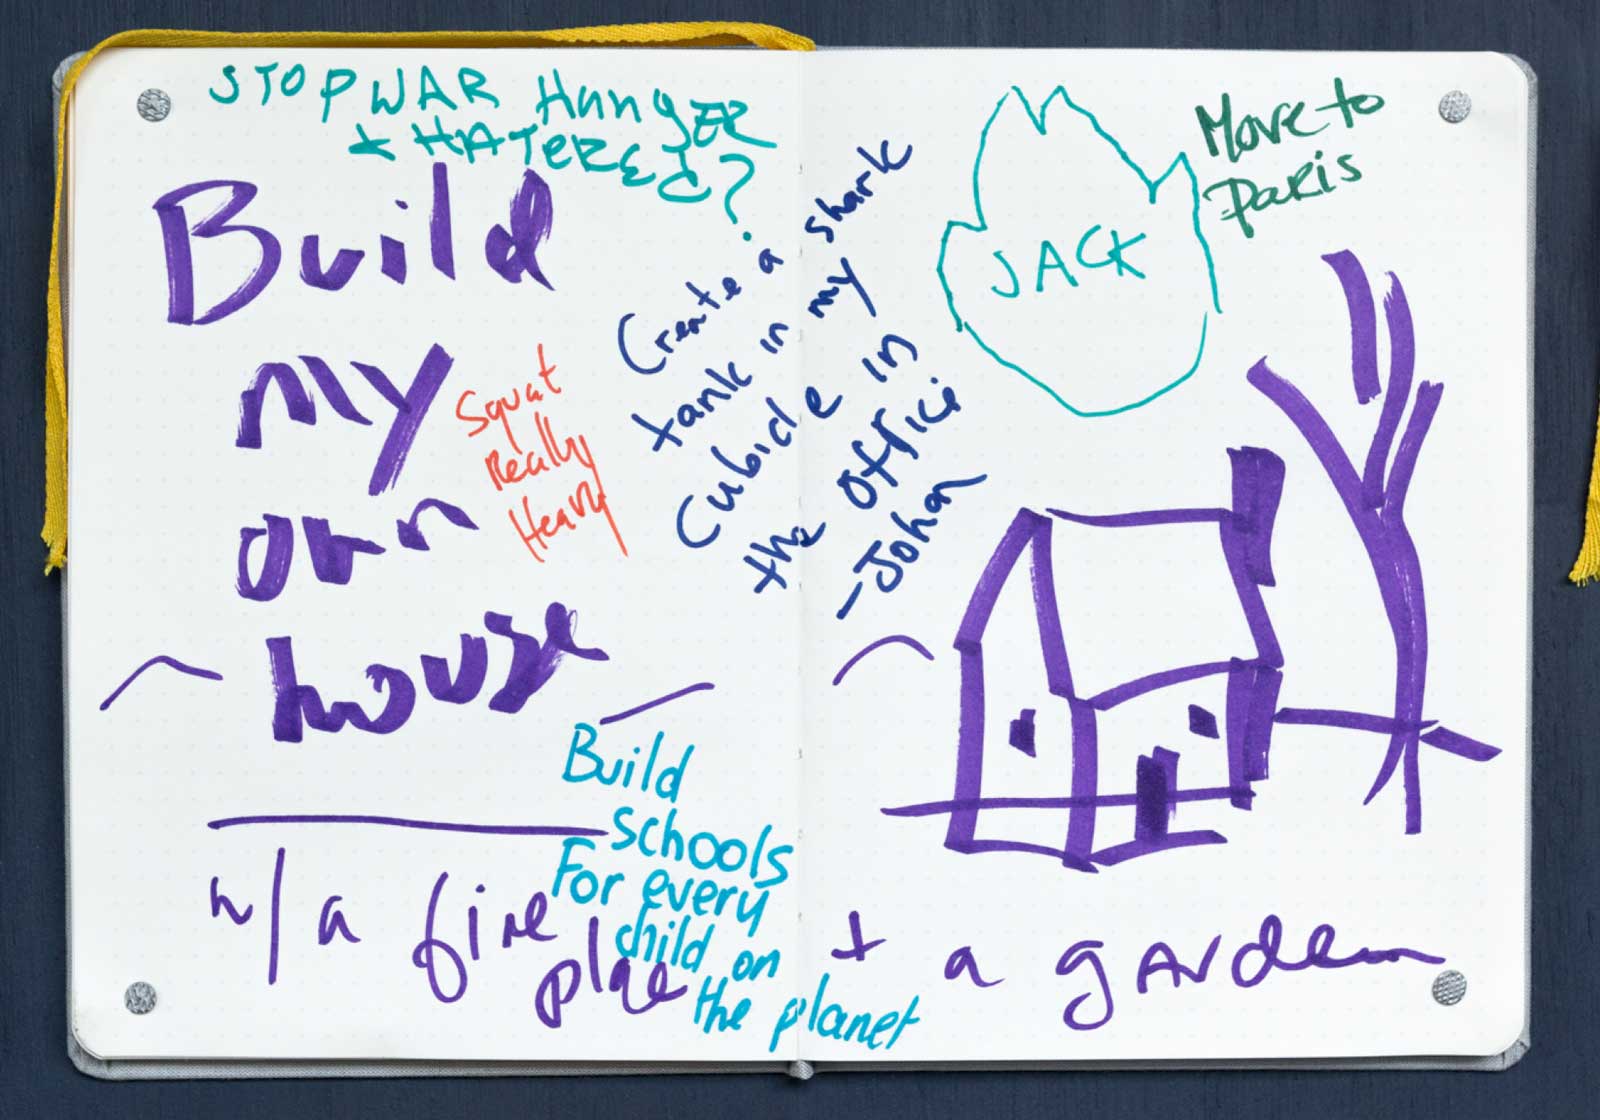 STOP WAR HungER
+ HATERED?
Build
my
own
house
w/ a fire
place + a garden
Squat
Really
Heavy
Create a shark
tank in my
Cubicle in
the office
-Johan
JACK
Move to
Paris
Build
schools
For every
child on
the planet